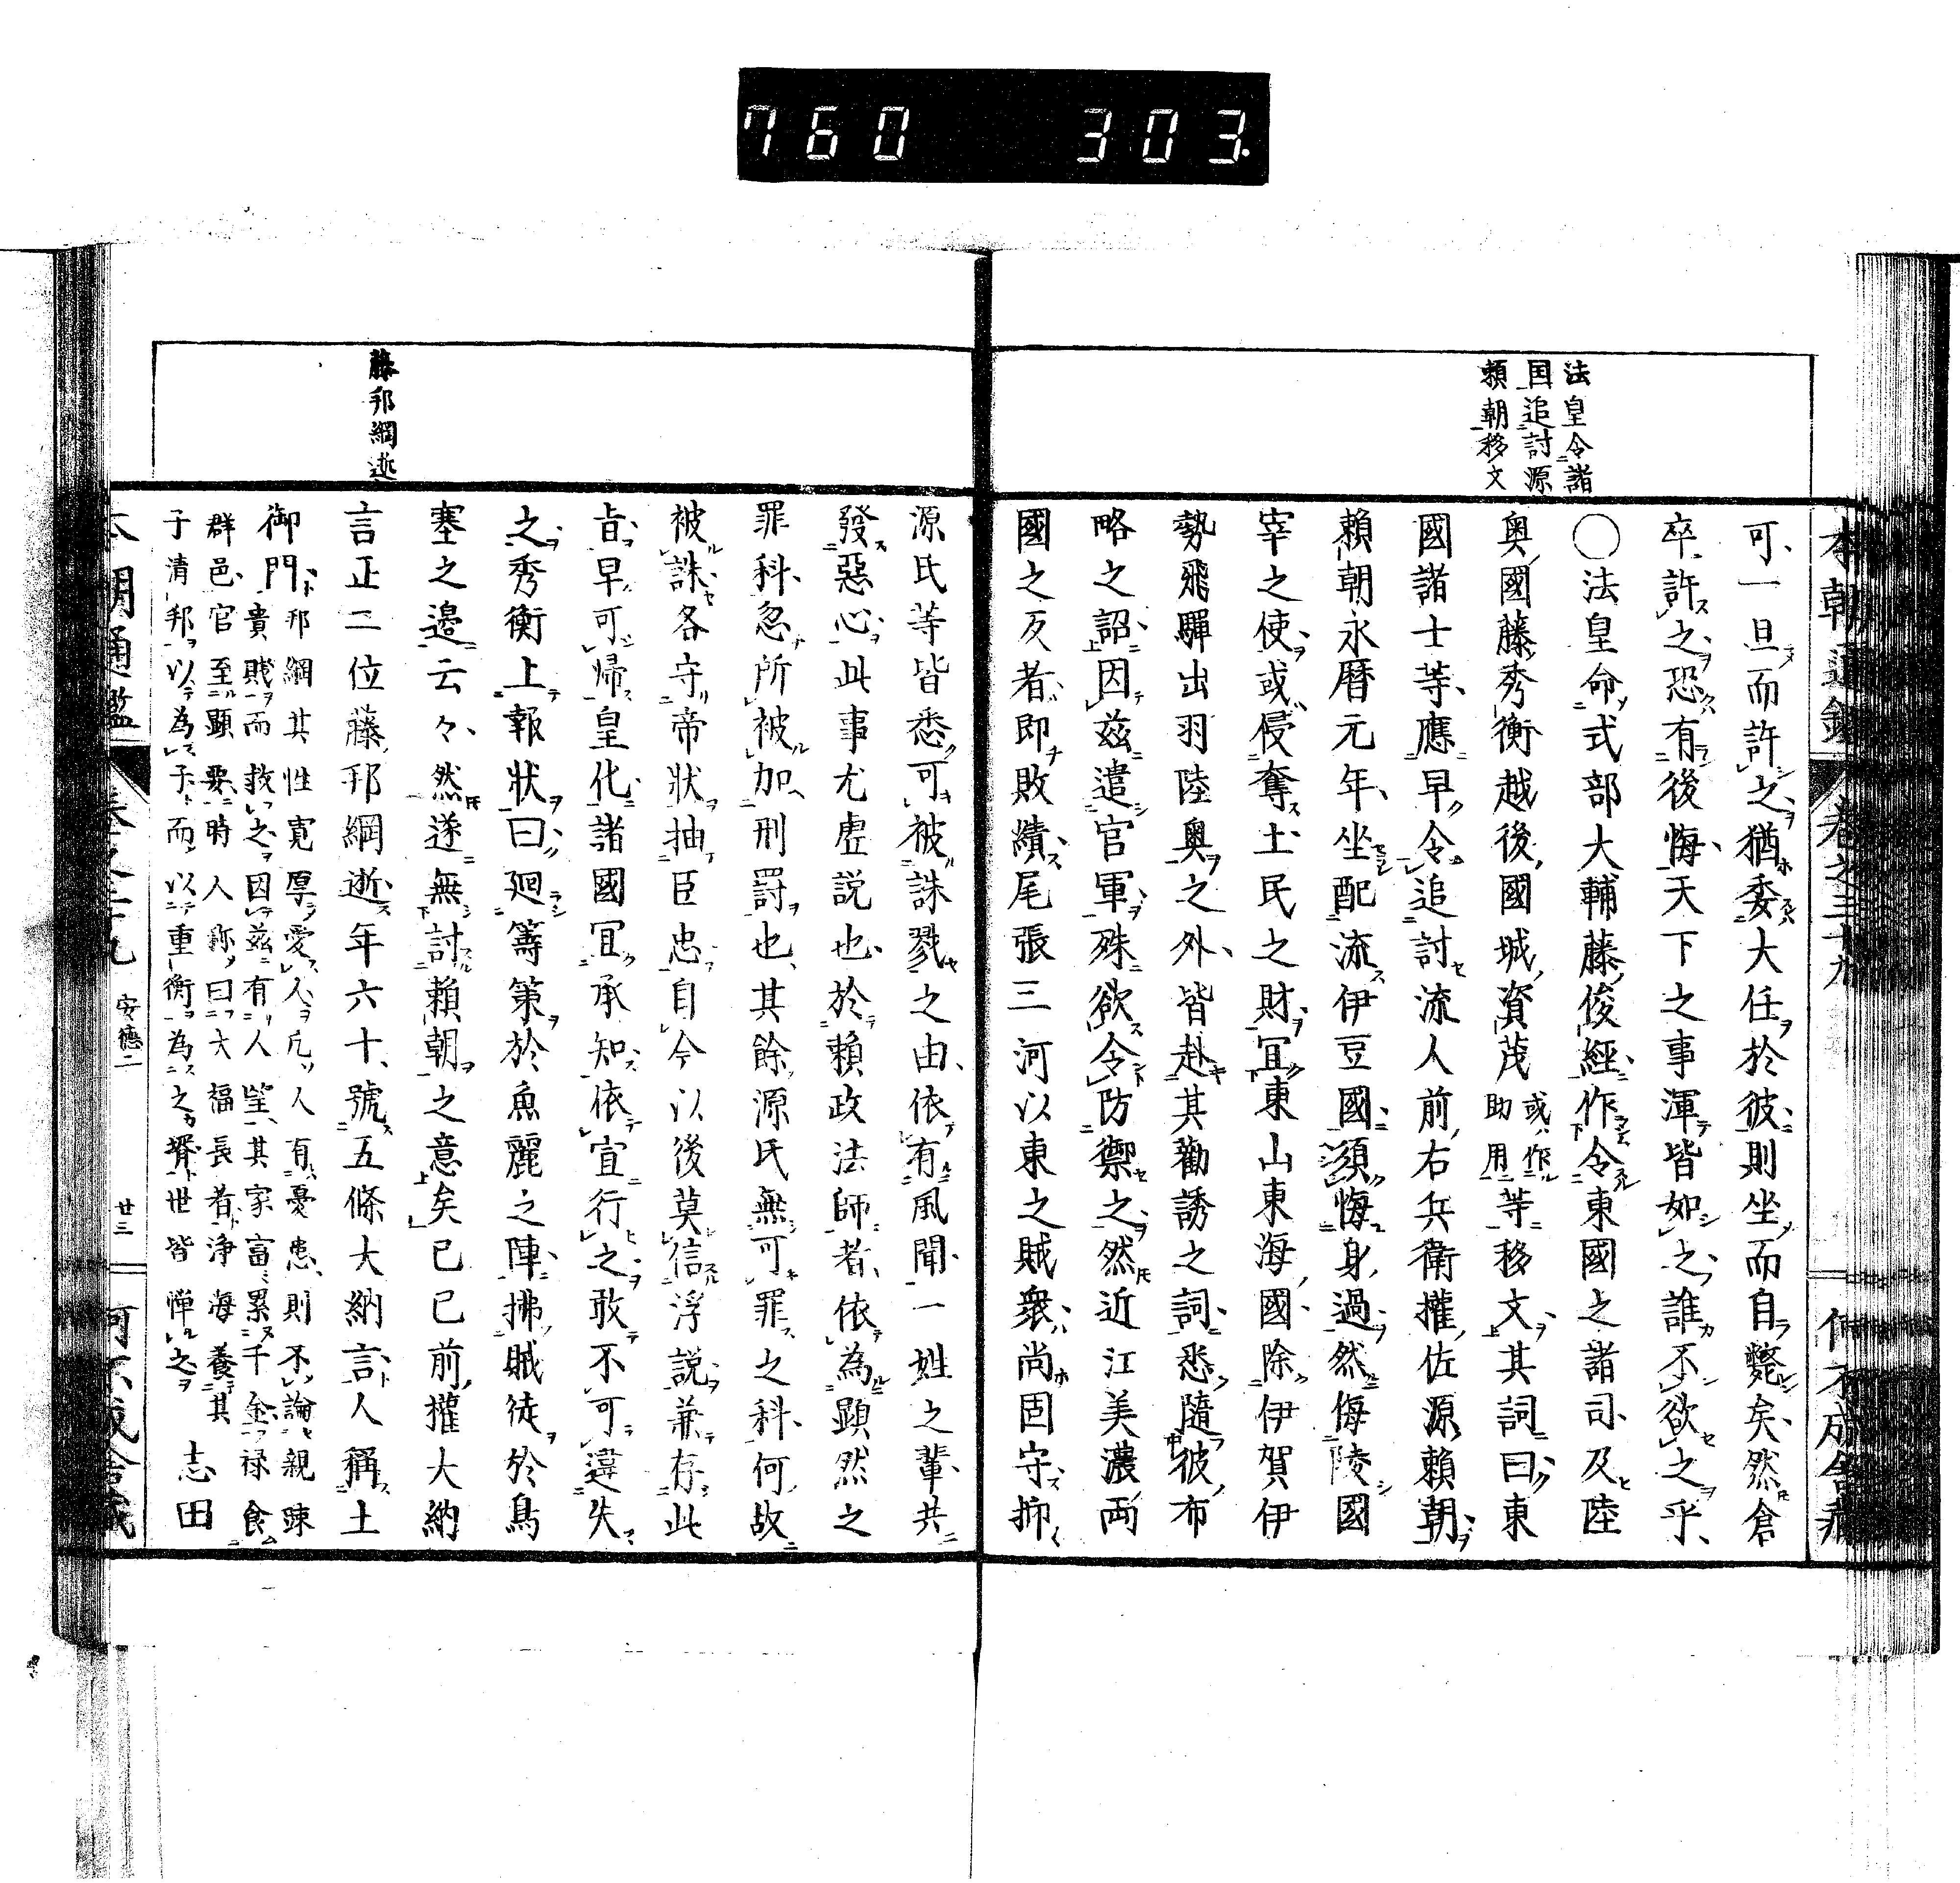 760 303
法皇令諸
国追討源
頼朝移文
本朝通鑑 卷之三十九
可一旦而許之猶委大任於彼則坐而自斃矣然倉
卒許之恐有後悔天下之事渾皆如之誰不欲之乎
○法皇命式部大輔藤俊經作令東國之諸司及陸
奥國藤秀衡越後國城資茂或作助用等移文其詞曰東
國諸士等應早令追討流人前右兵衛權佐源頼朝
頼朝永暦元年坐配流伊豆國須悔身過然侮陵國
宰之使或侵奪土民之財冝東山東海國除伊賀伊
勢飛驒出羽陸奥之外皆赴其勸誘之詞悉隨彼布
略之詔因茲遣官軍殊欲令防禦之然近江美濃両
國之反者即敗績尾張三河以東之賊衆尚固守抑
源氏等皆悉可被誅戮之由依有風聞一姓之輩共
發惡心此事尤虚説也於頼政法師者依為顕然之
罪科忽所被加刑罰也其餘源氏無可罪之科何故
被誅各守帝狀抽臣忠自今以後莫信浮説兼存此
旨早可帰皇化諸國冝承知依宣行之敢不可違失
之秀衡上報狀曰廻籌策於魚麗之陣拂賊徒於鳥
塞之邉云々然遂無討頼朝之意矣已已前權大納
言正二位藤邦綱逝年六十號五條大納言人稱土
御門邦綱其性寛厚愛人凡人有憂患則不論親踈
貴賎而救之因茲有人望其家富累千金禄食
群邑官至顯要時人称曰大福長者浄海養其
子清邦以為子而以重衡為之壻世皆憚之 志田
藤邦綱逝
安德二 廿三